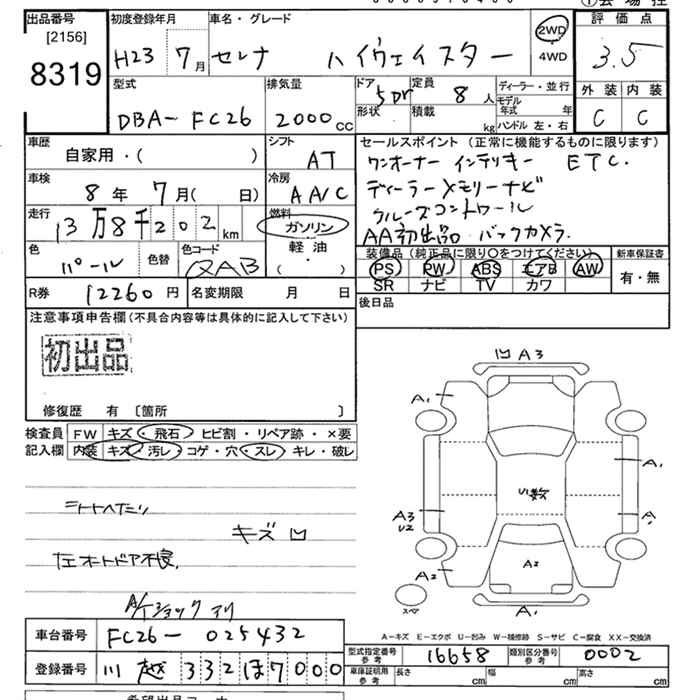 出品番号 初度登録年月 車名・グレード 2WD 評価点
[2156] 4WD
8319 H23 7月 セレナ ハイウェイスター 3.5
型式 排気量 ドア 定員 ディーラー・並行 外装 内装
DBA- FC26 2000cc 5DR 8人 モデル年式 年 C C
形状 積載 kg ハンドル 左・右
車歴 シフト セールスポイント(正常に機能するものに限ります)
自家用・( ) AT ワンオーナー インテリキー ETC.
車検 冷房 ディーラーメモリーナビ
8年 7月( 日) AA/C クルーズコントロール
走行 燃料 AA初出品 バックカメラ.
13万8千202km ガソリン
軽油 装備品(純正品に限り○をつけてください) 新車保証書
色 色替 色コード ・( ) PS PW ABS エアB AW 有・無
パール QAB SR ナビ TV カワ
R券 12260円 名変期限 月 日 後日品
注意事項申告欄(不具合内容等は具体的に記入して下さい)
初出品
修復歴 有 〔箇所 〕
検査員 FW キズ・飛石・ヒビ割・リペア跡・×要
記入欄 内装 キズ・汚レ・コゲ・穴・スレ・キレ・破レ
シートヘタリ
キズ 凹
左オートドア不良.
A/Tショックアリ
凹 A3
A1
A1
U1数
A3
U2
A1
A2
A2
スペア
A1
A-キズ E-エクボ U-凹み W-補修跡 S-サビ C-腐食 XX-交換済
車台番号 FC26-025432 型式指定番号 参考 16658 類別区分番号 参考 0002
登録番号 川越 332ほ7000 車庫証明用 参考 長さ cm 幅 cm 高さ cm